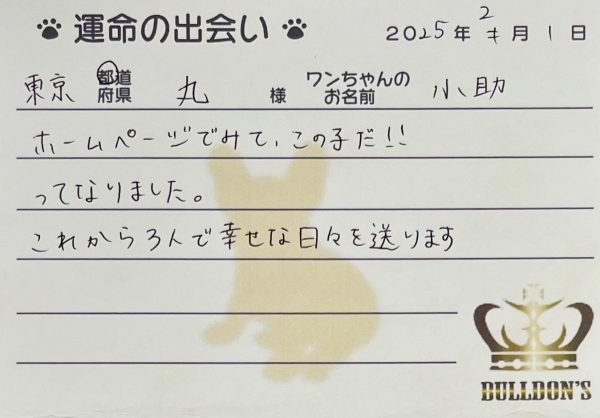 運命の出会い 2025年2月1日
東京 都道府県 丸 様 ワンちゃんのお名前 小助
ホームページでみて、この子だ!!
ってなりました。
これから3人で幸せな日々を送ります
BULLDON'S